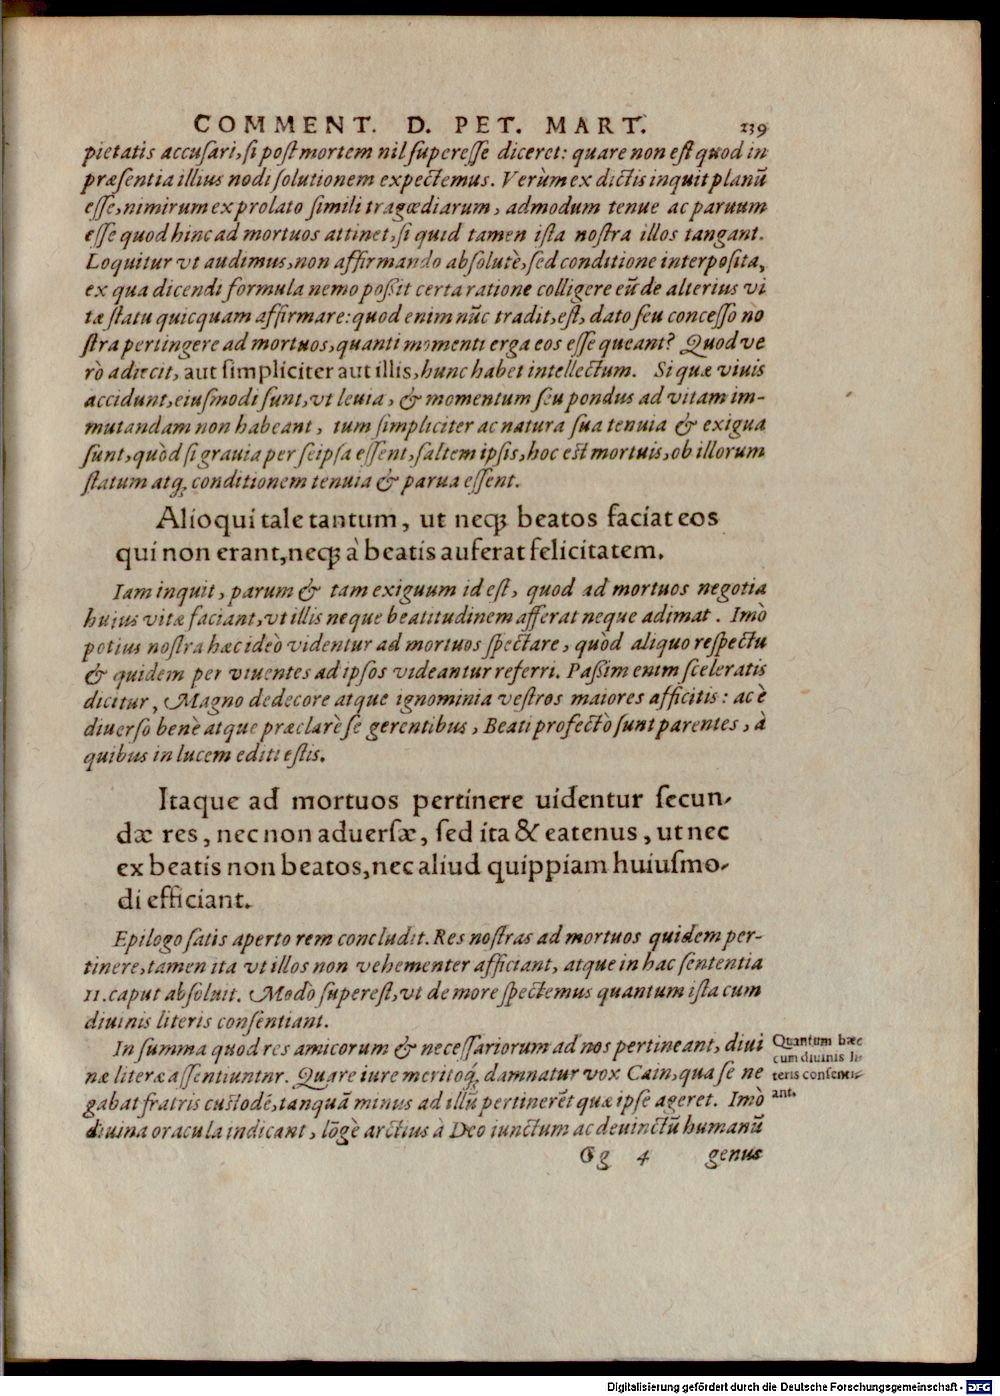 COMMENT. D. PET. MART. 239
pietatis accusari, si post mortem nil superesse diceret: quare non est quod in
præsentia illius nodi solutionem expectemus. Verùm ex dictis inquit planũ
esse, nimirum ex prolato simili tragœdiarum, admodum tenue ac paruum
esse quod hinc ad mortuos attinet, si quid tamen ista nostra illos tangant.
Loquitur vt audimus, non affirmando absolutè, sed conditione interposita,
ex qua dicendi formula nemo poßit certa ratione colligere eũ de alterius vi
tæ statu quicquam affirmare: quod enim nũc tradit, est, dato seu concesso no
stra pertingere ad mortuos, quanti momenti erga eos esse queant? Quod ve
rò adiecit, aut simpliciter aut illis, hunc habet intellectum. Si quæ viuis
accidunt, eiusmodi sunt, vt leuia, & momentum seu pondus ad vitam im-
mutandam non habeant, tum simpliciter ac natura sua tenuia & exigua
sunt, quòd si grauia per seipsa essent, saltem ipsis, hoc est mortuis, ob illorum
statum atq; conditionem tenuia & parua essent.
Alioqui tale tantum, ut neq; beatos faciat eos
qui non erant, neq; à beatis auferat felicitatem.
Iam inquit, parum & tam exiguum id est, quod ad mortuos negotia
huius vitæ faciant, vt illis neque beatitudinem afferat neque adimat. Imò
potius nostra hæc ideò videntur ad mortuos spectare, quòd aliquo respectu
& quidem per viuentes ad ipsos videantur referri. Paßim enim sceleratis
dicitur, Magno dedecore atque ignominia vestros maiores afficitis: ac è
diuerso benè atque præclarè se gerentibus, Beati profectò sunt parentes, à
quibus in lucem editi estis.
Itaque ad mortuos pertinere uidentur secun-
dæ res, nec non aduersæ, sed ita & eatenus, ut nec
ex beatis non beatos, nec aliud quippiam huiusmo-
di efficiant.
Epilogo satis aperto rem concludit. Res nostras ad mortuos quidem per-
tinere, tamen ita vt illos non vehementer afficiant, atque in hac sententia
11. caput absoluit. Modò superest, vt de more spectemus quantum ista cum
diuinis literis consentiant.
In summa quod res amicorum & necessariorum ad nos pertineant, diui
næ literæ assentiuntnr. Quare iure meritoq; damnatur vox Cain, qua se ne
gabat fratris custodē, tanquã minus ad illũ pertinerēt quæ ipse ageret. Imò
diuina oracula indicant, lõgè arctius à Deo iunctum ac deuinctũ humanũ
Quantum hæc
cum diuinis li-
teris consenti-
ant.
Gg 4 genus
Digitalisierung gefördert durch die Deutsche Forschungsgemeinschaft - DFG